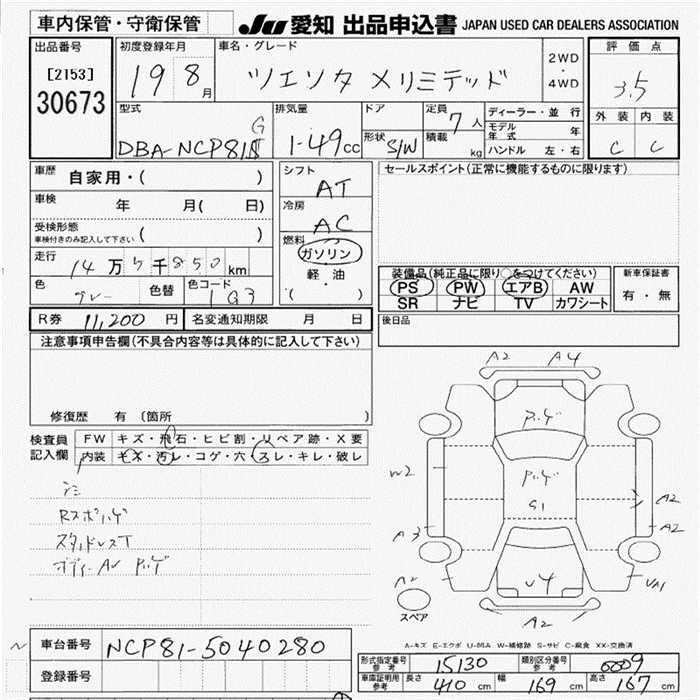 車内保管・守衛保管 JU 愛知 出品申込書 JAPAN USED CAR DEALERS ASSOCIATION
出品番号 初度登録年月 車名・グレード 2WD・4WD 評価点
[2153] 30673 19 8月 3.5
型式 排気量 ドア 定員 7人 ディーラー・並行 外装 内装
形状 S/W 積載 kg モデル年式 年
DBA-NCP81 G 1-49cc ハンドル 左・右 C C
車歴 自家用・( ) シフト AT セールスポイント(正常に機能するものに限ります)
車検 年 月( 日) 冷房 AC
受検形態 ( )
車検付きのみ記入して下さい
燃料 ガソリン
走行 14万5千850km 軽・油 装備品(純正品に限り○をつけてください) 新車保証書
色 グレー 色替 色コード 1G3 ・( ) PS PW エアB AW 有・無
SR ナビ TV カワシート
R券 11,200円 名変通知期限 月 日 後日品
注意事項申告欄(不具合内容等は具体的に記入して下さい)
修復歴 有 (箇所 )
検査員 FW キズ・飛石・ヒビ割・リペア跡・X要
記入欄 内装 キズ・汚レ・コゲ・穴・スレ・キレ・破レ
シミ
スタッドレスT
A2 A4
S1
W2 A2
A3 A2
A2 U4 UA1
スペア A2
A-キズ E-エクボ U-凹ミ W-補修跡 S-サビ C-腐食 XX-交換済
車台番号 NCP81-5040280
型式指定番号 参考 15130 類別区分番号 参考 0009
登録番号 車庫証明 参考 長さ 410cm 幅 169cm 高さ 167cm